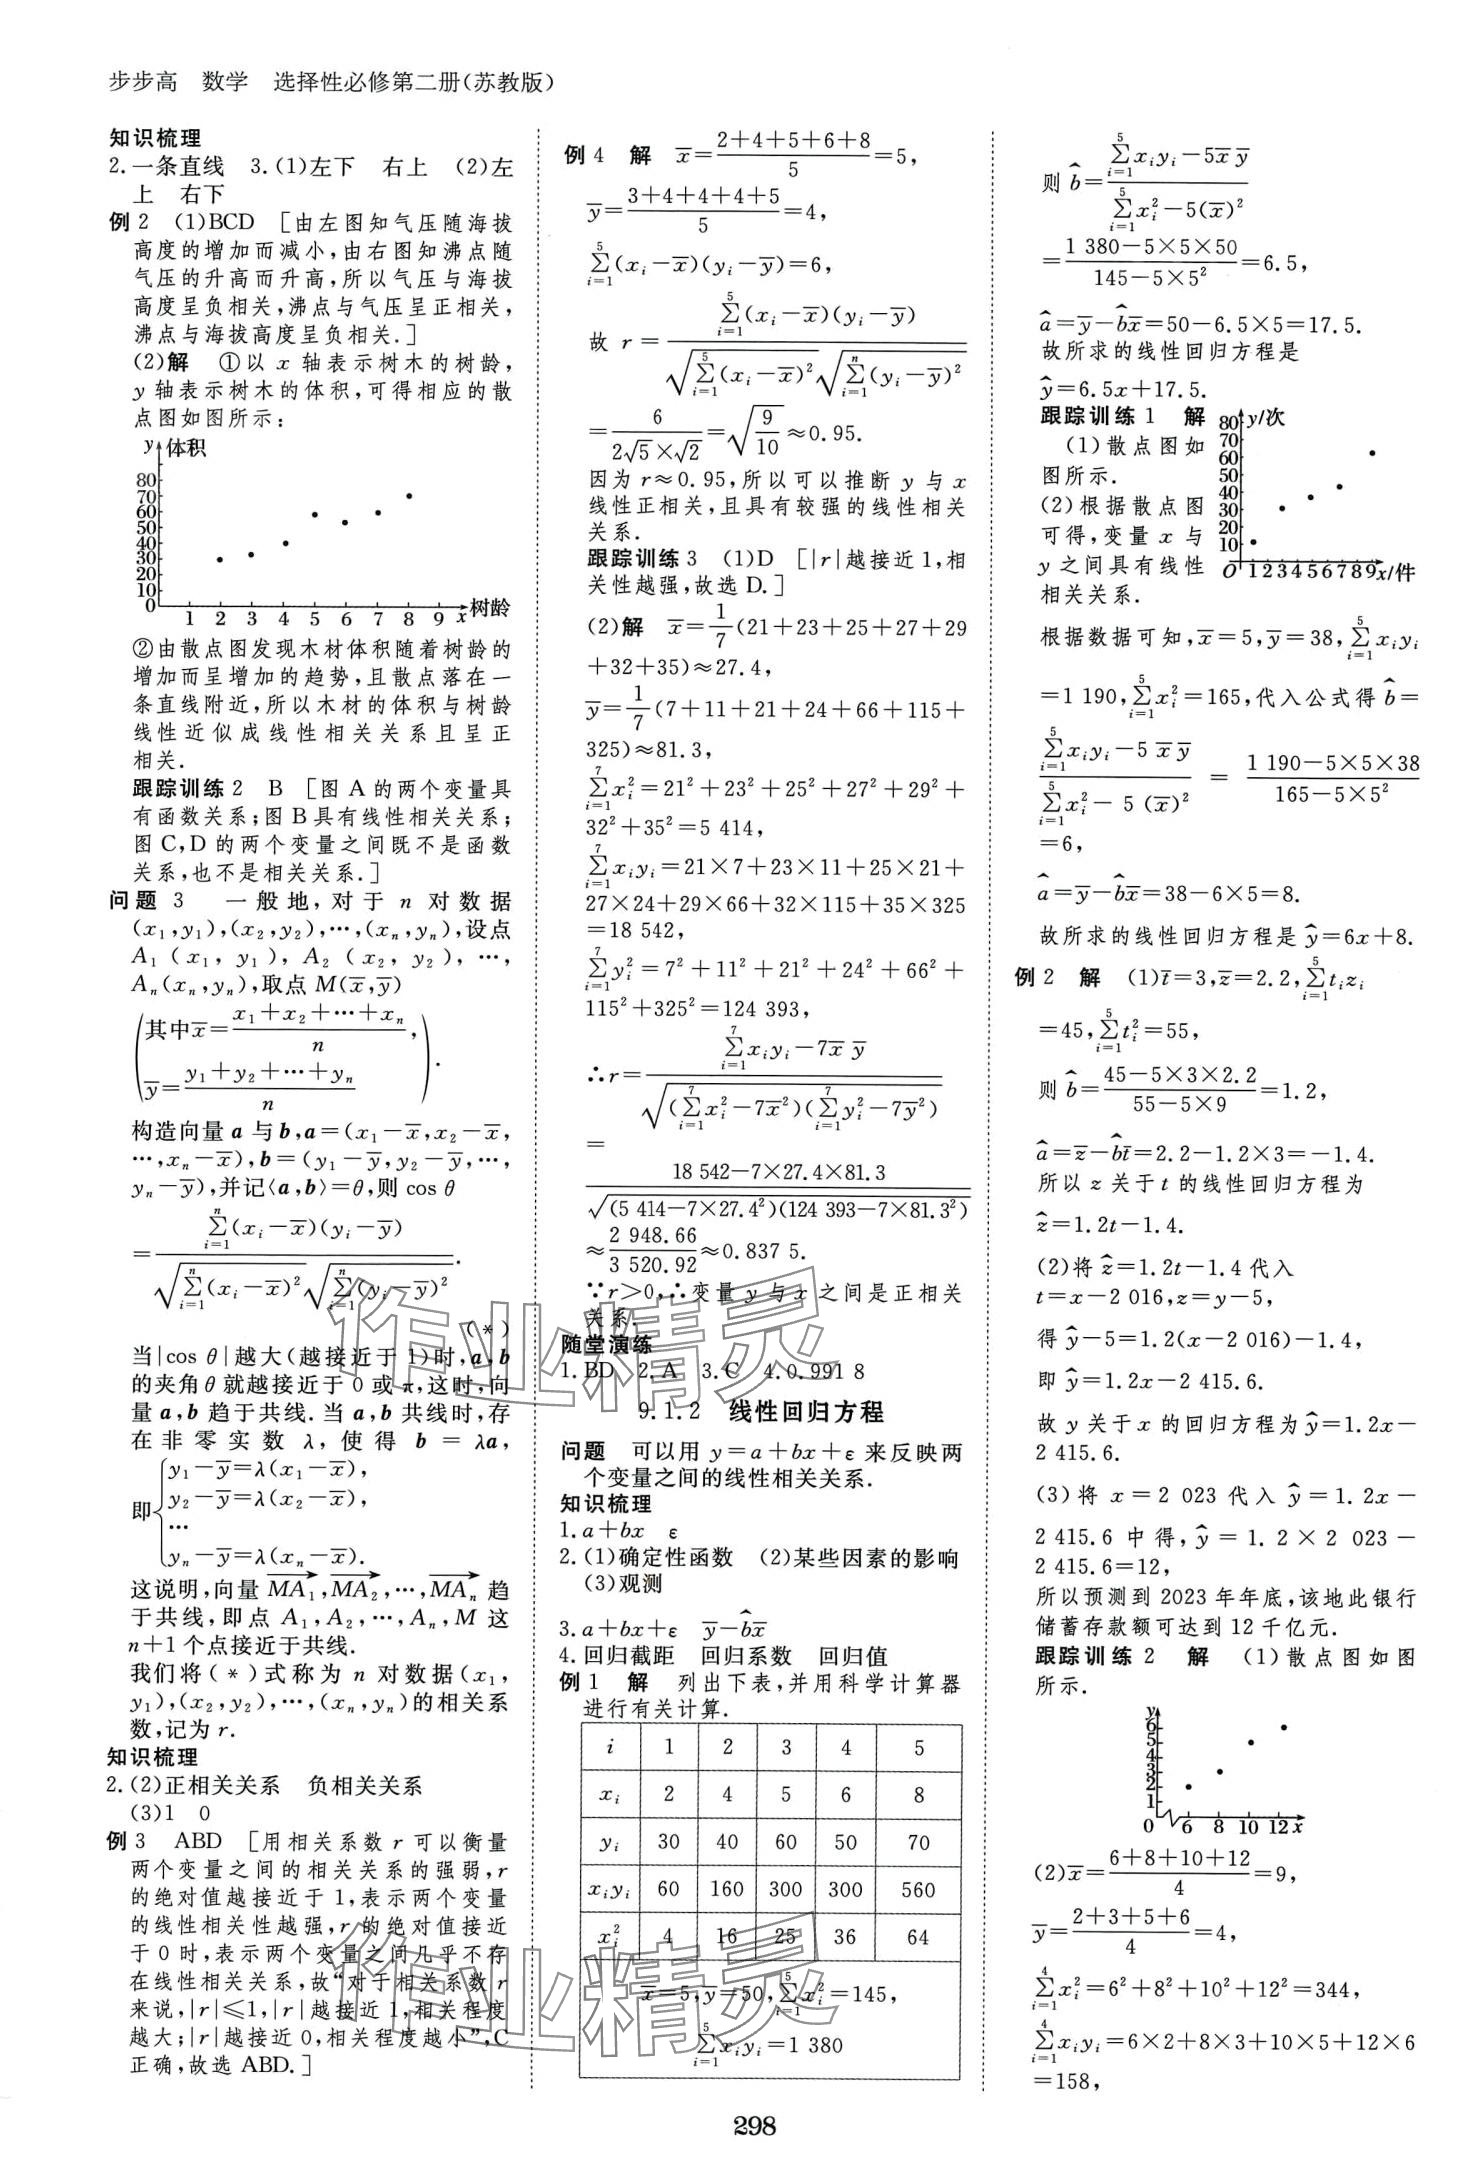 步步高 数学 选择性必修第二册(苏教版)
知识梳理
2.一条直线 3.(1)左下 右上 (2)左
上 右下
例2 (1)BCD [由左图知气压随海拔
高度的增加而减小,由右图知沸点随
气压的升高而升高,所以气压与海拔
高度呈负相关,沸点与气压呈正相关,
沸点与海拔高度呈负相关.]
(2)解 ①以 x 轴表示树木的树龄,
y 轴表示树木的体积,可得相应的散
点图如图所示:
y 体积
80
70
60
50
40
30
20
10
0 1 2 3 4 5 6 7 8 9 x 树龄
②由散点图发现木材体积随着树龄的
增加而呈增加的趋势,且散点落在一
条直线附近,所以木材的体积与树龄
线性近似成线性相关关系且呈正
相关.
跟踪训练2 B [图 A 的两个变量具
有函数关系;图B具有线性相关关系;
图 C,D 的两个变量之间既不是函数
关系,也不是相关关系.]
问题 3 一般地,对于 n 对数据
(x₁,y₁),(x₂,y₂),…,(xₙ,yₙ),设点
A₁(x₁,y₁),A₂(x₂,y₂),…,
Aₙ(xₙ,yₙ),取点 M(x̄,ȳ)
(其中x̄=(x₁+x₂+…+xₙ)/n,
ȳ=(y₁+y₂+…+yₙ)/n).
构造向量 a 与 b,a=(x₁-x̄,x₂-x̄,
…,xₙ-x̄),b=(y₁-ȳ,y₂-ȳ,…,
yₙ-ȳ),并记⟨a,b⟩=θ,则 cos θ
=∑ⁿᵢ₌₁(xᵢ-x̄)(yᵢ-ȳ)/(√(∑ⁿᵢ₌₁(xᵢ-x̄)²)√(∑ⁿᵢ₌₁(yᵢ-ȳ)²)).
(*)
当|cos θ|越大(越接近于1)时,a,b
的夹角θ就越接近于0或π,这时,向
量a,b 趋于共线.当a,b共线时,存
在非零实数 λ,使得 b=λa,
即{y₁-ȳ=λ(x₁-x̄),
y₂-ȳ=λ(x₂-x̄),
…
yₙ-ȳ=λ(xₙ-x̄).
这说明,向量 MA₁,MA₂,…,MAₙ 趋
于共线,即点 A₁,A₂,…,Aₙ,M 这
n+1个点接近于共线.
我们将(*)式称为 n 对数据(x₁,
y₁),(x₂,y₂),…,(xₙ,yₙ)的相关系
数,记为 r.
知识梳理
2.(2)正相关关系 负相关关系
(3)1 0
例3 ABD [用相关系数 r 可以衡量
两个变量之间的相关关系的强弱,r
的绝对值越接近于1,表示两个变量
的线性相关性越强,r的绝对值接近
于0时,表示两个变量之间几乎不存
在线性相关关系,故“对于相关系数r
来说,|r|≤1,|r|越接近1,相关程度
越大;|r|越接近0,相关程度越小”,C
正确,故选 ABD.]
例4 解 x̄=(2+4+5+6+8)/5=5,
ȳ=(3+4+4+4+5)/5=4,
∑⁵ᵢ₌₁(xᵢ-x̄)(yᵢ-ȳ)=6,
故 r=∑⁵ᵢ₌₁(xᵢ-x̄)(yᵢ-ȳ)/(√(∑⁵ᵢ₌₁(xᵢ-x̄)²)√(∑ⁿᵢ₌₁(yᵢ-ȳ)²))
=6/(2√5×√2)=√(9/10)≈0.95.
因为r≈0.95,所以可以推断 y 与 x
线性正相关,且具有较强的线性相关
关系.
跟踪训练3 (1)D [|r|越接近1,相
关性越强,故选 D.]
(2)解 x̄=1/7(21+23+25+27+29
+32+35)≈27.4,
ȳ=1/7(7+11+21+24+66+115+
325)≈81.3,
∑⁷ᵢ₌₁xᵢ²=21²+23²+25²+27²+29²+
32²+35²=5 414,
∑⁷ᵢ₌₁xᵢyᵢ=21×7+23×11+25×21+
27×24+29×66+32×115+35×325
=18 542,
∑⁷ᵢ₌₁yᵢ²=7²+11²+21²+24²+66²+
115²+325²=124 393,
∴r=(∑⁷ᵢ₌₁xᵢyᵢ-7x̄ ȳ)/√((∑⁷ᵢ₌₁xᵢ²-7x̄²)(∑⁷ᵢ₌₁yᵢ²-7ȳ²))
=
(18 542-7×27.4×81.3)/√((5 414-7×27.4²)(124 393-7×81.3²))
≈2 948.66/3 520.92≈0.837 5.
∵r>0,∴变量 y 与 x 之间是正相关
关系.
随堂演练
1.BD 2.A 3.C 4.0.991 8
9.1.2 线性回归方程
问题 可以用 y=a+bx+ε 来反映两
个变量之间的线性相关关系.
知识梳理
1.a+bx ε
2.(1)确定性函数 (2)某些因素的影响
(3)观测
3.a+bx+ε ȳ-b̂x̄
4.回归截距 回归系数 回归值
例1 解 列出下表,并用科学计算器
进行有关计算.
i 1 2 3 4 5
xᵢ 2 4 5 6 8
yᵢ 30 40 60 50 70
xᵢyᵢ 60 160 300 300 560
xᵢ² 4 16 25 36 64
x̄=5,ȳ=50,∑⁵ᵢ₌₁xᵢ²=145,
∑⁵ᵢ₌₁xᵢyᵢ=1 380
则 b̂=(∑⁵ᵢ₌₁xᵢyᵢ-5x̄ ȳ)/(∑⁵ᵢ₌₁xᵢ²-5(x̄)²)
=(1 380-5×5×50)/(145-5×5²)=6.5,
â=ȳ-b̂x̄=50-6.5×5=17.5.
故所求的线性回归方程是
ŷ=6.5x+17.5.
跟踪训练1 解
(1)散点图如
图所示.
(2)根据散点图
可得,变量 x 与
y 之间具有线性
相关关系.
y/次
80
70
60
50
40
30
20
10
O 1 2 3 4 5 6 7 8 9 x/件
根据数据可知,x̄=5,ȳ=38,∑⁵ᵢ₌₁xᵢyᵢ
=1 190,∑⁵ᵢ₌₁xᵢ²=165,代入公式得 b̂=
(∑⁵ᵢ₌₁xᵢyᵢ-5 x̄ ȳ)/(∑⁵ᵢ₌₁xᵢ²-5(x̄)²)=(1 190-5×5×38)/(165-5×5²)
=6,
â=ȳ-b̂x̄=38-6×5=8.
故所求的线性回归方程是ŷ=6x+8.
例2 解 (1)t̄=3,z̄=2.2,∑⁵ᵢ₌₁tᵢzᵢ
=45,∑⁵ᵢ₌₁tᵢ²=55,
则 b̂=(45-5×3×2.2)/(55-5×9)=1.2,
â=z̄-b̂t̄=2.2-1.2×3=-1.4.
所以 z 关于 t 的线性回归方程为
ẑ=1.2t-1.4.
(2)将ẑ=1.2t-1.4代入
t=x-2 016,z=y-5,
得ŷ-5=1.2(x-2 016)-1.4,
即ŷ=1.2x-2 415.6.
故 y 关于 x 的回归方程为ŷ=1.2x-
2 415.6.
(3)将 x=2 023 代入 ŷ=1.2x-
2 415.6 中得,ŷ=1.2×2 023-
2 415.6=12,
所以预测到2023年年底,该地此银行
储蓄存款额可达到12千亿元.
跟踪训练2 解 (1)散点图如图
所示.
y
6
5
4
3
2
1
0 6 8 10 12 x
(2)x̄=(6+8+10+12)/4=9,
ȳ=(2+3+5+6)/4=4,
∑⁴ᵢ₌₁xᵢ²=6²+8²+10²+12²=344,
∑⁴ᵢ₌₁xᵢyᵢ=6×2+8×3+10×5+12×6
=158,
298
作业精灵
作业精灵